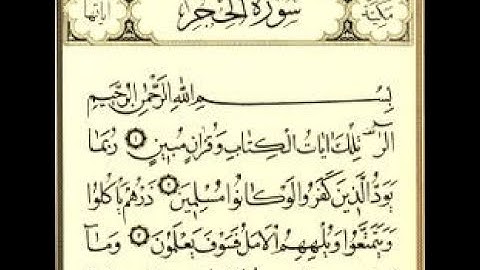 مكية سورة الحجر آياتها
بِسْمِ اللهِ الرَّحْمٰنِ الرَّحِيمِ
الٓرٰ تِلْكَ اٰيَاتُ الْكِتَابِ وَقُرْاٰنٍ مُبٖينٍ ١ رُبَمَا
يَوَدُّ الَّذٖينَ كَفَرُوا لَوْ كَانُوا مُسْلِمٖينَ ٢ ذَرْهُمْ يَاْكُلُوا
وَيَتَمَتَّعُوا وَيُلْهِهِمُ الْاَمَلُ فَسَوْفَ يَعْلَمُونَ ٣ وَمَٓا